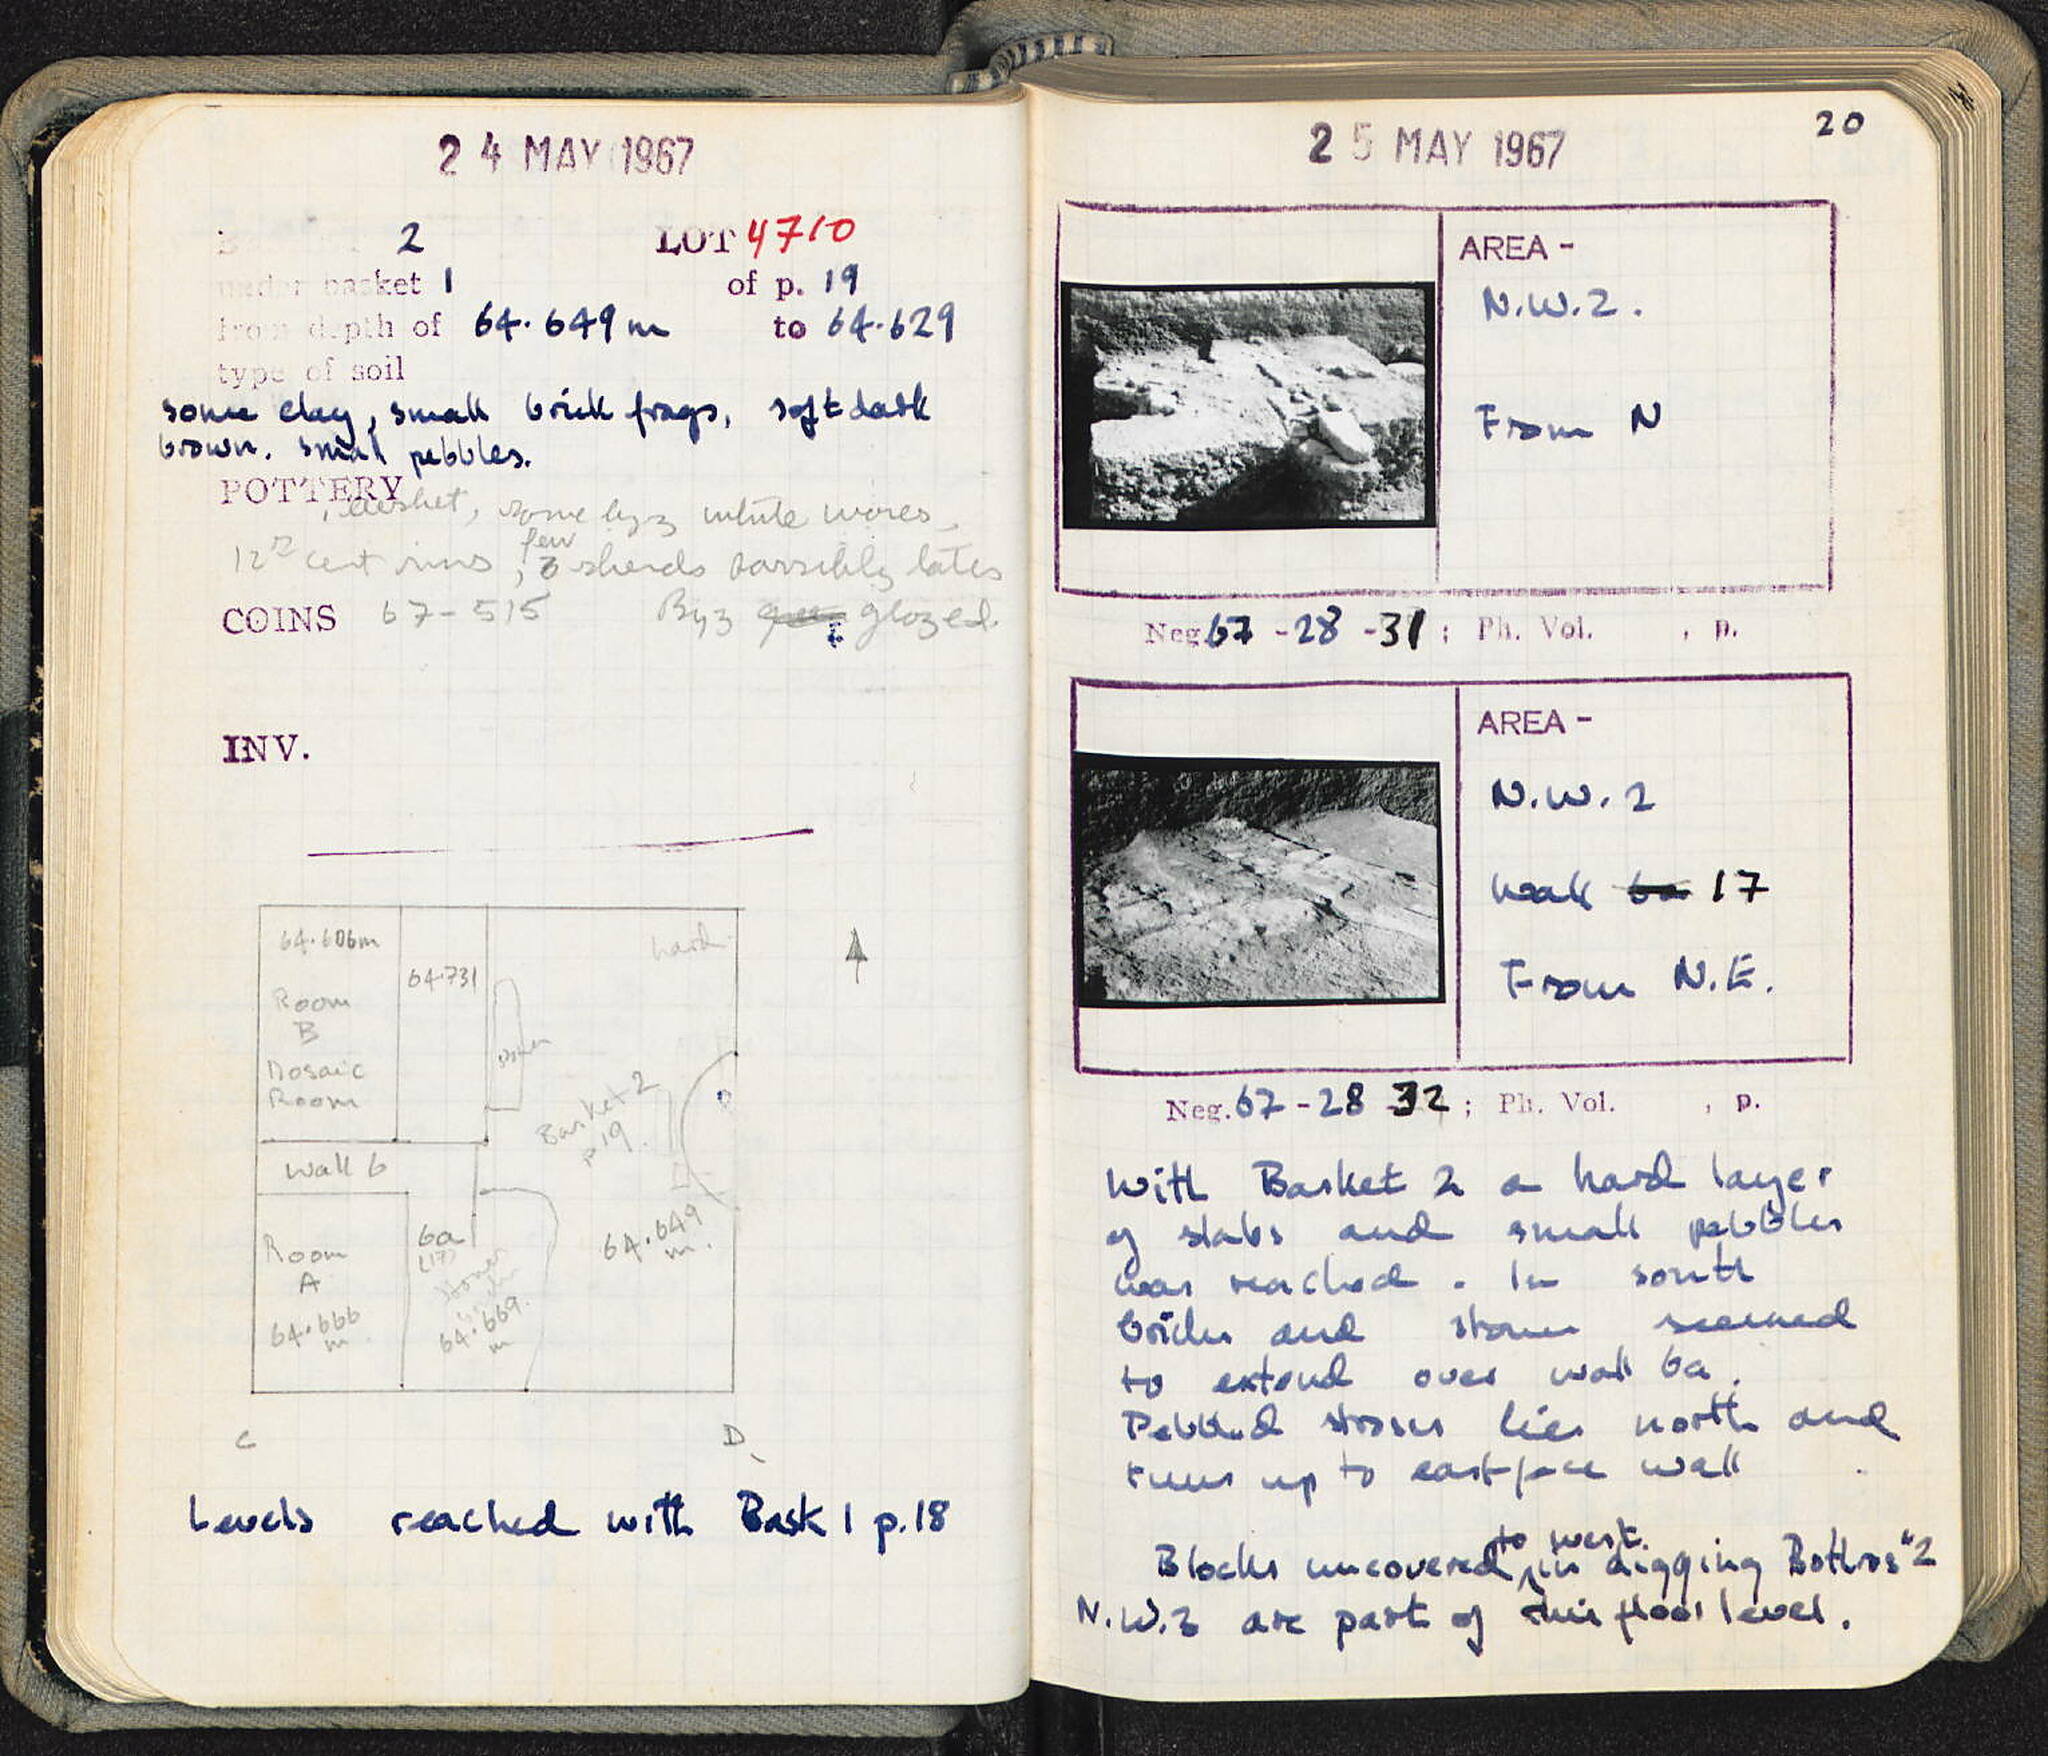 24 MAY 1967
BASKET 2 LOT 4710
under basket 1 of p. 19
from depth of 64.649 m to 64.629
type of soil
some clay, small brick frags, soft dark
brown. small pebbles.
POTTERY
1 basket, some byz white wares
12th cent rims, few 3 sherds possibly later
COINS 67-515 Byz glazed.
INV.
64.606m
64.731
hard
Room
B
Mosaic
Room
Basket 2
p 19.
Wall 6
Room
A
64.666
m
6a
(17)
stones
64.669
m
64.649
m.
C D.
Levels reached with Bask 1 p.18
20
25 MAY 1967
AREA -
N.W.2.
From N
Neg. 67 - 28 - 31 ; Ph. Vol. , p.
AREA -
N.W.2
Wall 6a 17
From N.E.
Neg. 67 - 28 - 32 ; Ph. Vol. , p.
With Basket 2 a hard layer
of slabs and small pebbles
was reached. In south
bricks and stones seemed
to extend over wall 6a.
Pebbled stroses lies north and
runs up to east face wall
Blocks uncovered to west. in digging Bothros #2
N.W.2 are part of this floor level.